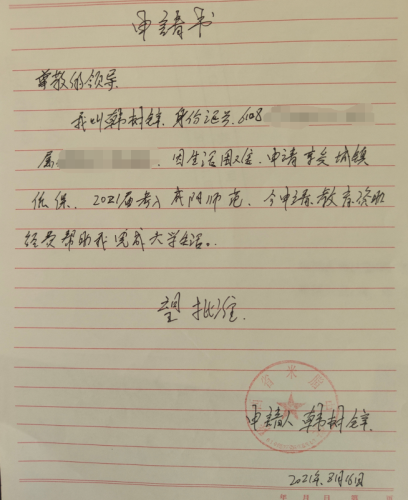 申请书
尊敬的领导
我叫韩树锋.身份证号.6108
属 .因生活困难.申请享受城镇
低保、2021届考入咸阳师范、今申请教育资助
经费帮助我完成大学生活。
望批准.
申请人 韩树锋.
2021年8月16日